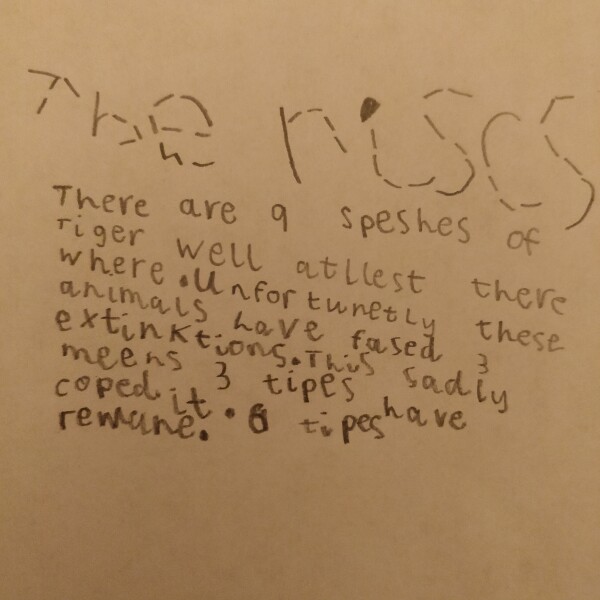 The riscs
There are 9 speshes of
Tiger well atllest there
where .Unfortunetly these
animals have fased 3
extinktions.This sadly
meens 3 tipes have
coped it. 6 tipes
remane.